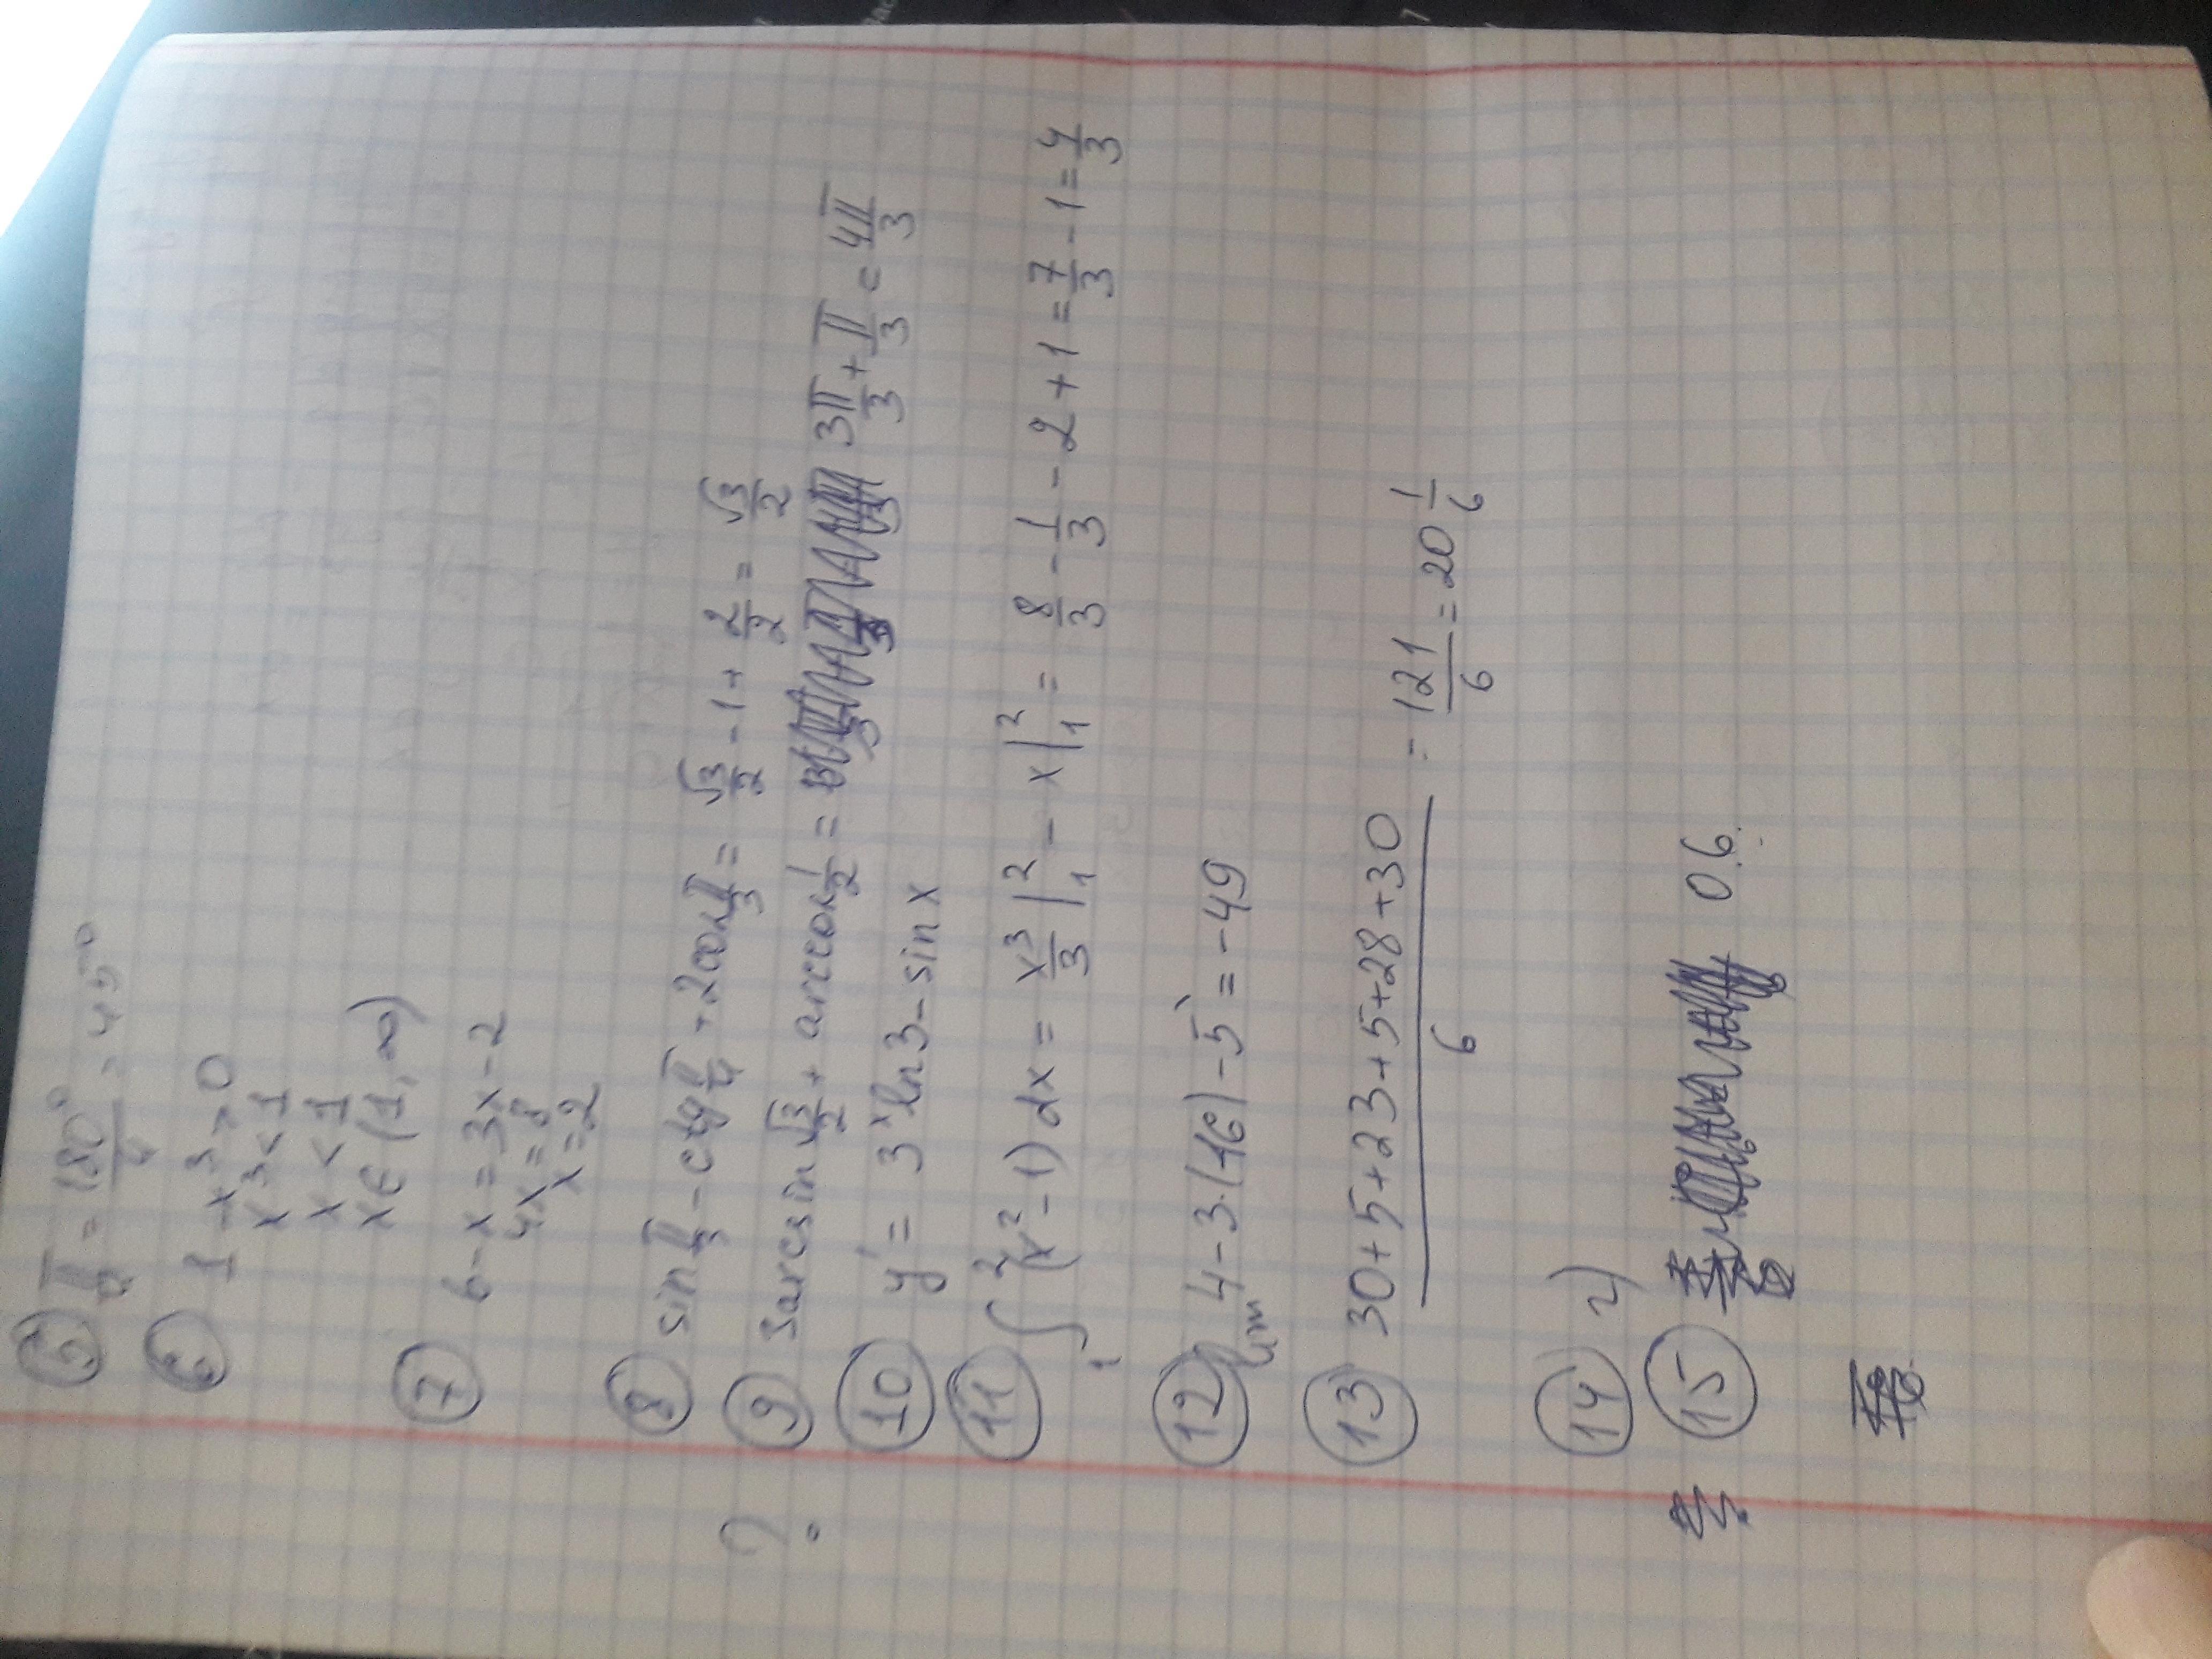 5) π/4 = 180°/4 = 45°
6) 1 - x³ > 0
x³ < 1
x < 1
x ∈ (1, ∞)
7) 6 - x = 3x - 2
4x = 8
x = 2
8) sin π/3 - ctg π/4 + 2cos π/3 = √3/2 - 1 + 2/2 = √3/2
? 9) 3arcsin √3/2 + arccos 1/2 = 3π/3 + π/3 = 4π/3
10) y' = 3ˣ ln3 - sin x
11) ∫₁² (x² - 1) dx = x³/3 |₁² - x |₁² = 8/3 - 1/3 - 2 + 1 = 7/3 - 1 = 4/3
12) lim 4 - 3·(16) - 5 = -49
13) (30 + 5 + 23 + 5 + 28 + 30)/6 = 121/6 = 20 1/6
14) г)
15) 0.6.